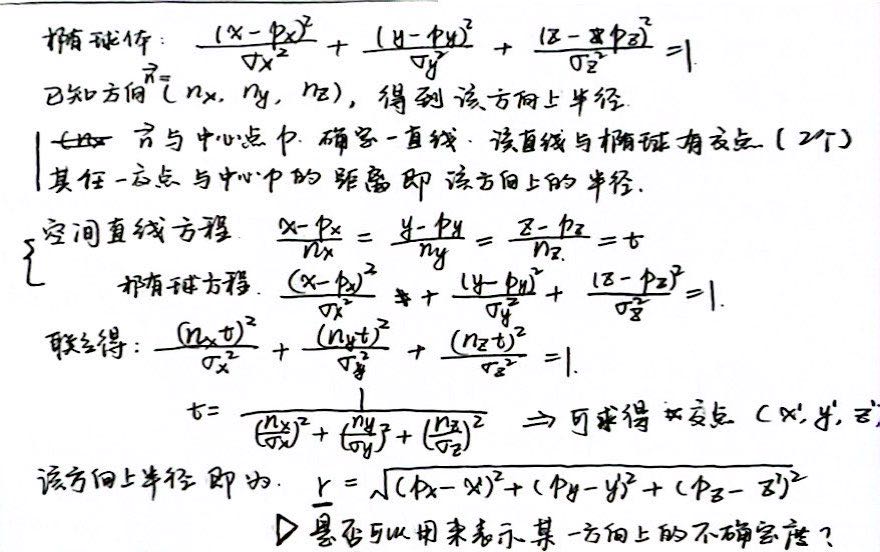 椭球体: (x-px)²/σx² + (y-py)²/σy² + (z-pz)²/σz² = 1
已知方向 n⃗=(nx, ny, nz), 得到该方向上半径.
n⃗与中心点p. 确定一直线. 该直线与椭球有交点 (2个)
其任一交点与中心p的距离即该方向上的半径.
空间直线方程. (x-px)/nx = (y-py)/ny = (z-pz)/nz = t
椭球方程. (x-px)²/σx² + (y-py)²/σy² + (z-pz)²/σz² = 1.
联立得: (nxt)²/σx² + (nyt)²/σy² + (nzt)²/σz² = 1.
t = 1/((nx/σx)² + (ny/σy)² + (nz/σz)²) ⇒ 可求得交点 (x', y', z'
该方向上半径即为. r = √((px-x')² + (py-y')² + (pz-z')²)
▷ 是否可以用来表示某一方向上的不确定度?